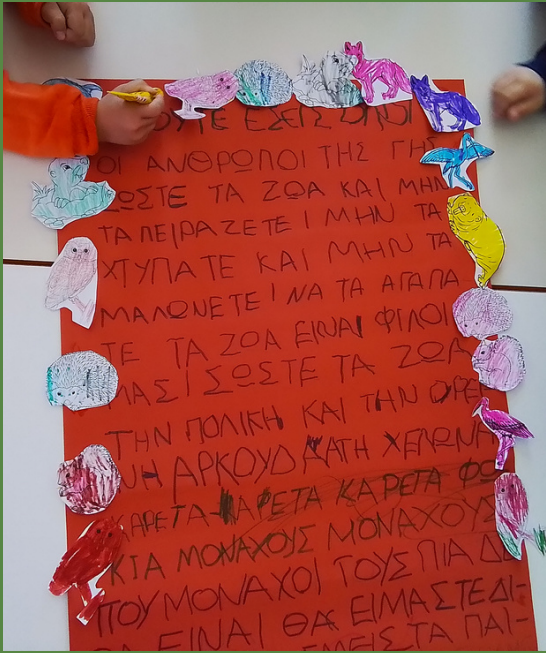 ΕΣΕΙΣ ΟΛΟΙ
ΟΙ ΑΝΘΡΩΠΟΙ ΤΗΣ ΓΗΣ
ΣΩΣΤΕ ΤΑ ΖΩΑ ΚΑΙ ΜΗΝ
ΤΑ ΠΕΙΡΑΖΕΤΕ! ΜΗΝ ΤΑ
ΧΤΥΠΑΤΕ ΚΑΙ ΜΗΝ ΤΑ
ΜΑΛΩΝΕΤΕ! ΝΑ ΤΑ ΑΓΑΠΑ
ΤΕ ΤΑ ΖΩΑ ΕΙΝΑΙ ΦΙΛΟΙ
ΜΑΣ! ΣΩΣΤΕ ΤΑ ΖΩΑ
ΤΗΝ ΠΟΛΙΚΗ ΚΑΙ ΤΗΝ
ΑΡΚΟΥΔΑ ΤΗ ΧΕΛΩΝΑ
ΚΑΡΕΤΑ ΚΑΡΕΤΑ ΚΑΡΕΤΑ ΦΩ
ΚΙΑ ΜΟΝΑΧΟΥΣ ΜΟΝΑΧΟΥΣ
ΠΟΥ ΜΟΝΑΧΟΙ ΤΟΥΣ ΠΙΑ ΔΕ
ΘΑ ΕΙΝΑΙ ΘΑ ΕΙΜΑΣΤΕ ΔΙ-
ΕΜΕΙΣ ΤΑ ΠΑΙ-